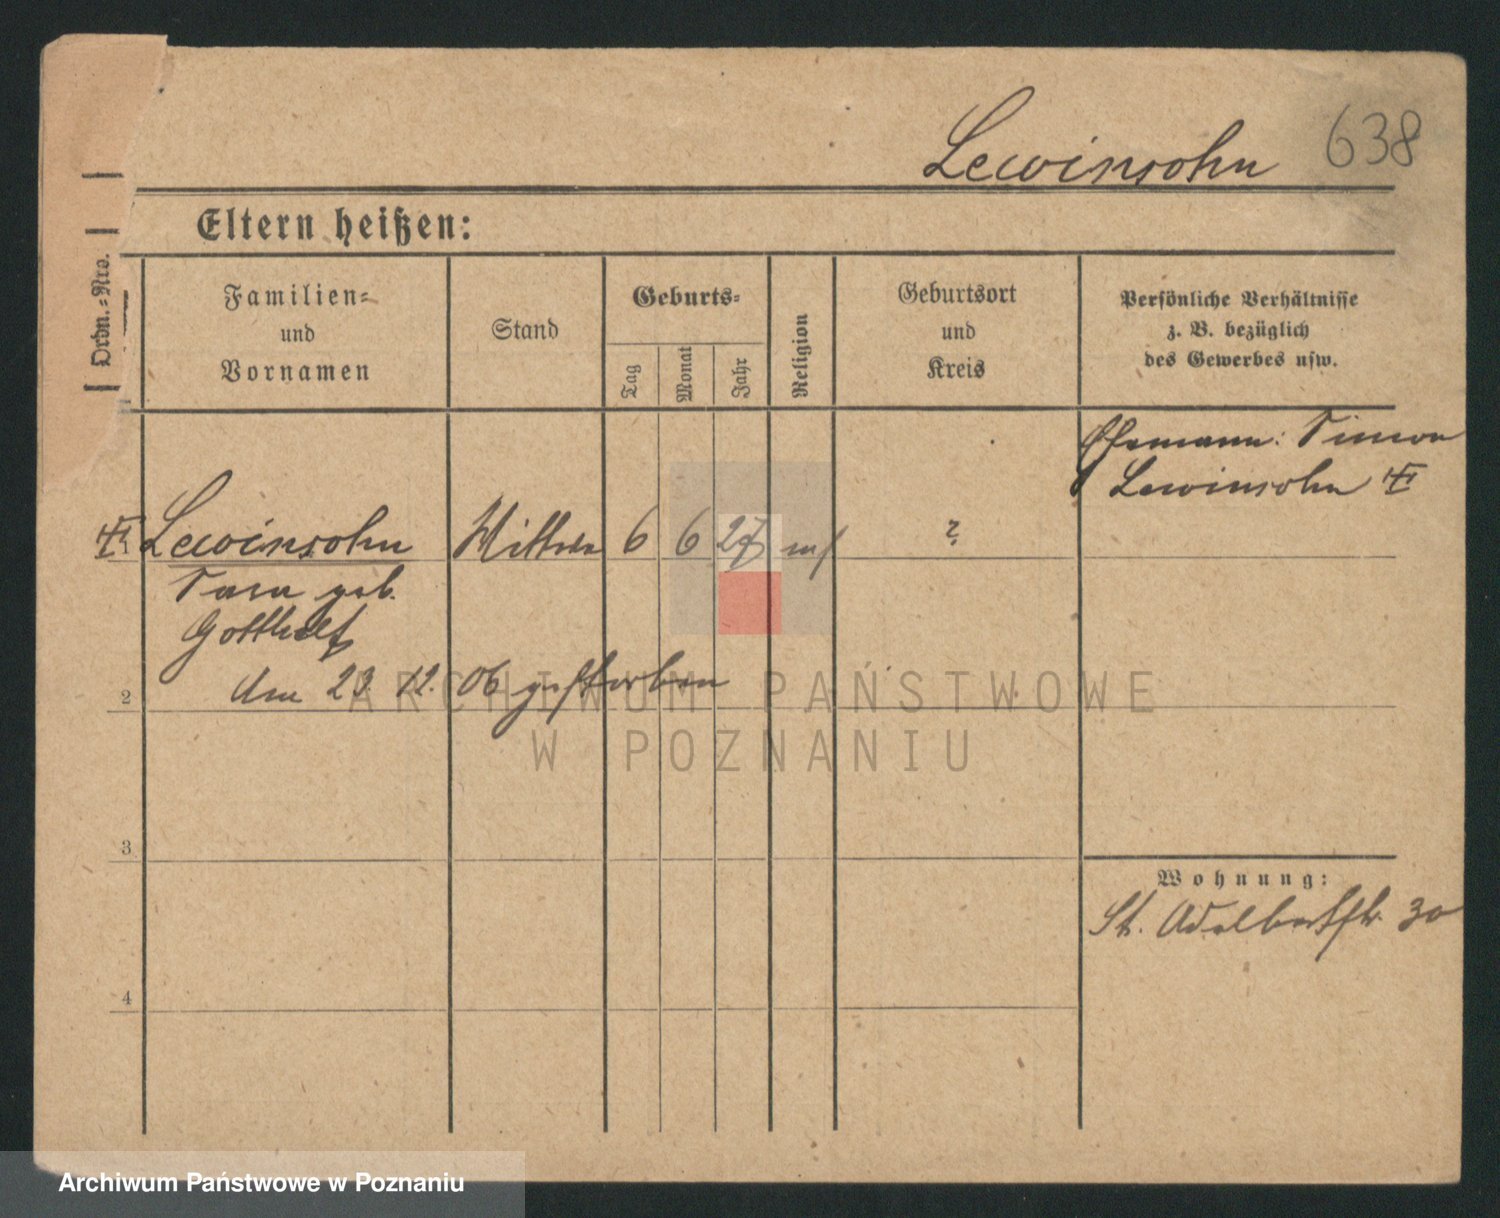 Lewinsohn 638
Eltern heißen:
Ordn.=Nro.
Familien=
und
Vornamen
Stand
Geburts=
Tag
Monat
Jahr
Religion
Geburtsort
und
Kreis
Persönliche Verhältnisse
z. B. bezüglich
des Gewerbes usw.
Ehemann: Simon
Lewinsohn
Lewinsohn Wittwe 6 6 27 ?
Sara geb.
Gotthelf
2 Am 23. 12. 06 gestorben
3
4
Wohnung:
St. Adalbertstr. 30
ARCHIWUM PAŃSTWOWE
W POZNANIU
Archiwum Państwowe w Poznaniu